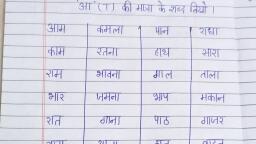 'आ' (ा) की मात्रा के शब्द लिखो।
आम कमला पान राधा
काम रतना हाथ सारा
राम भावना गाल ताला
भार जमना आप मकान
रात गाना पाठ गाजर